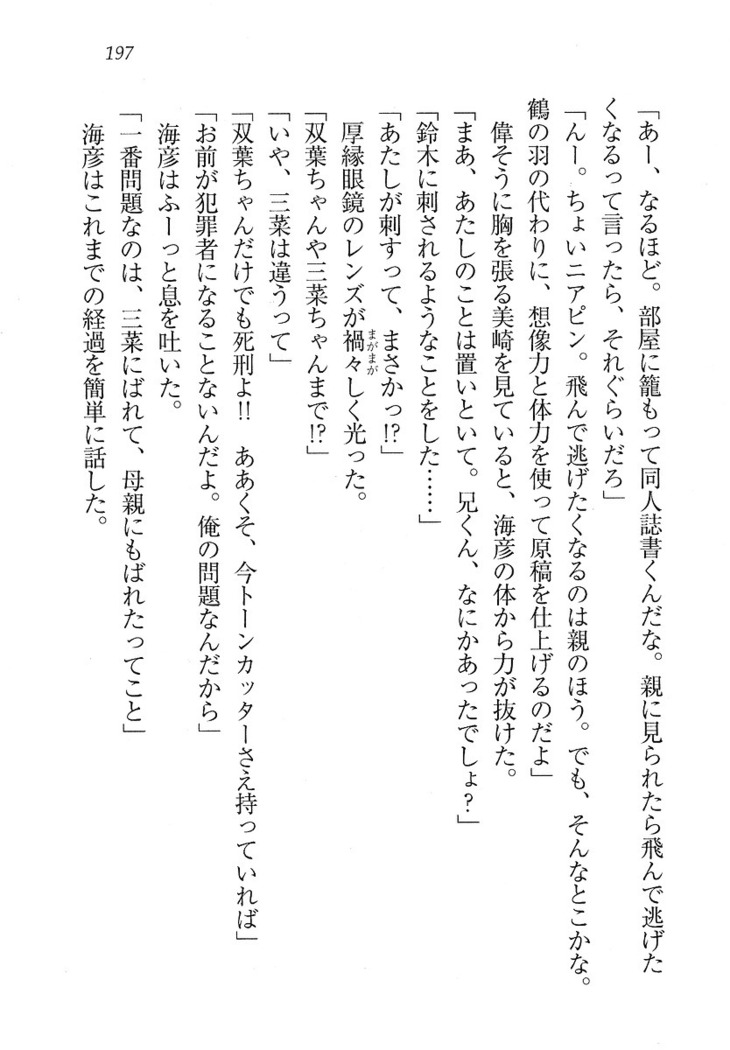 197
「あー、なるほど。部屋に籠もって同人誌書くんだな。親に見られたら飛んで逃げた
くなるって言ったら、それぐらいだろ」
「んー。ちょいニアピン。飛んで逃げたくなるのは親のほう。でも、そんなとこかな。
鶴の羽の代わりに、想像力と体力を使って原稿を仕上げるのだよ」
偉そうに胸を張る美崎を見ていると、海彦の体から力が抜けた。
「まあ、あたしのことは置いといて。兄くん、なにかあったでしょ?」
「鈴木に刺されるようなことをした……」
「あたしが刺すって、まさかっ!?」
厚縁眼鏡のレンズが禍々しく光った。
まがまが
「双葉ちゃんや三菜ちゃんまで!?」
「いや、三菜は違うって」
「双葉ちゃんだけでも死刑よ!! ああくそ、今トーンカッターさえ持っていれば」
「お前が犯罪者になることないんだよ。俺の問題なんだから」
海彦はふーっと息を吐いた。
「一番問題なのは、三菜にばれて、母親にもばれたってこと」
海彦はこれまでの経過を簡単に話した。